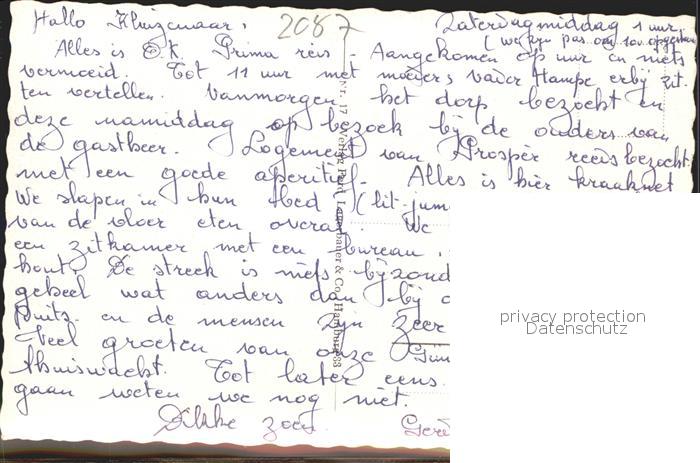 Hallo Kluizenaar, 2087 Zaterdagmiddag 1 uur.
(we zijn pas om 10u opgestaan
Alles is O.K. Prima reis - Aangekomen op uur en niets
vermoeid. Tot 11 uur met moeders vader Hampe erbij zit-
ten vertellen. Vanmorgen het dorp bezocht en
deze namiddag op bezoek bij de ouders van
de gastheer. Logement van Prosper reeds bezocht
met een goede aperitief. Alles is hier kraaknet
We slapen in hun bed (lit-jum
van de vloer eten overal. We
een zitkamer met een bureau
hout. De streek is niets bijzond
geheel wat anders dan bij o
Duits en de mensen zijn zeer
Veel groeten van onze
thuiswacht. Tot later eens.
gaan weten we nog niet.
Dikke zoen. Geré
Nr. 17 Verlag Paul Lauerbauer & Co. Hamburg 33
privacy protection
Datenschutz